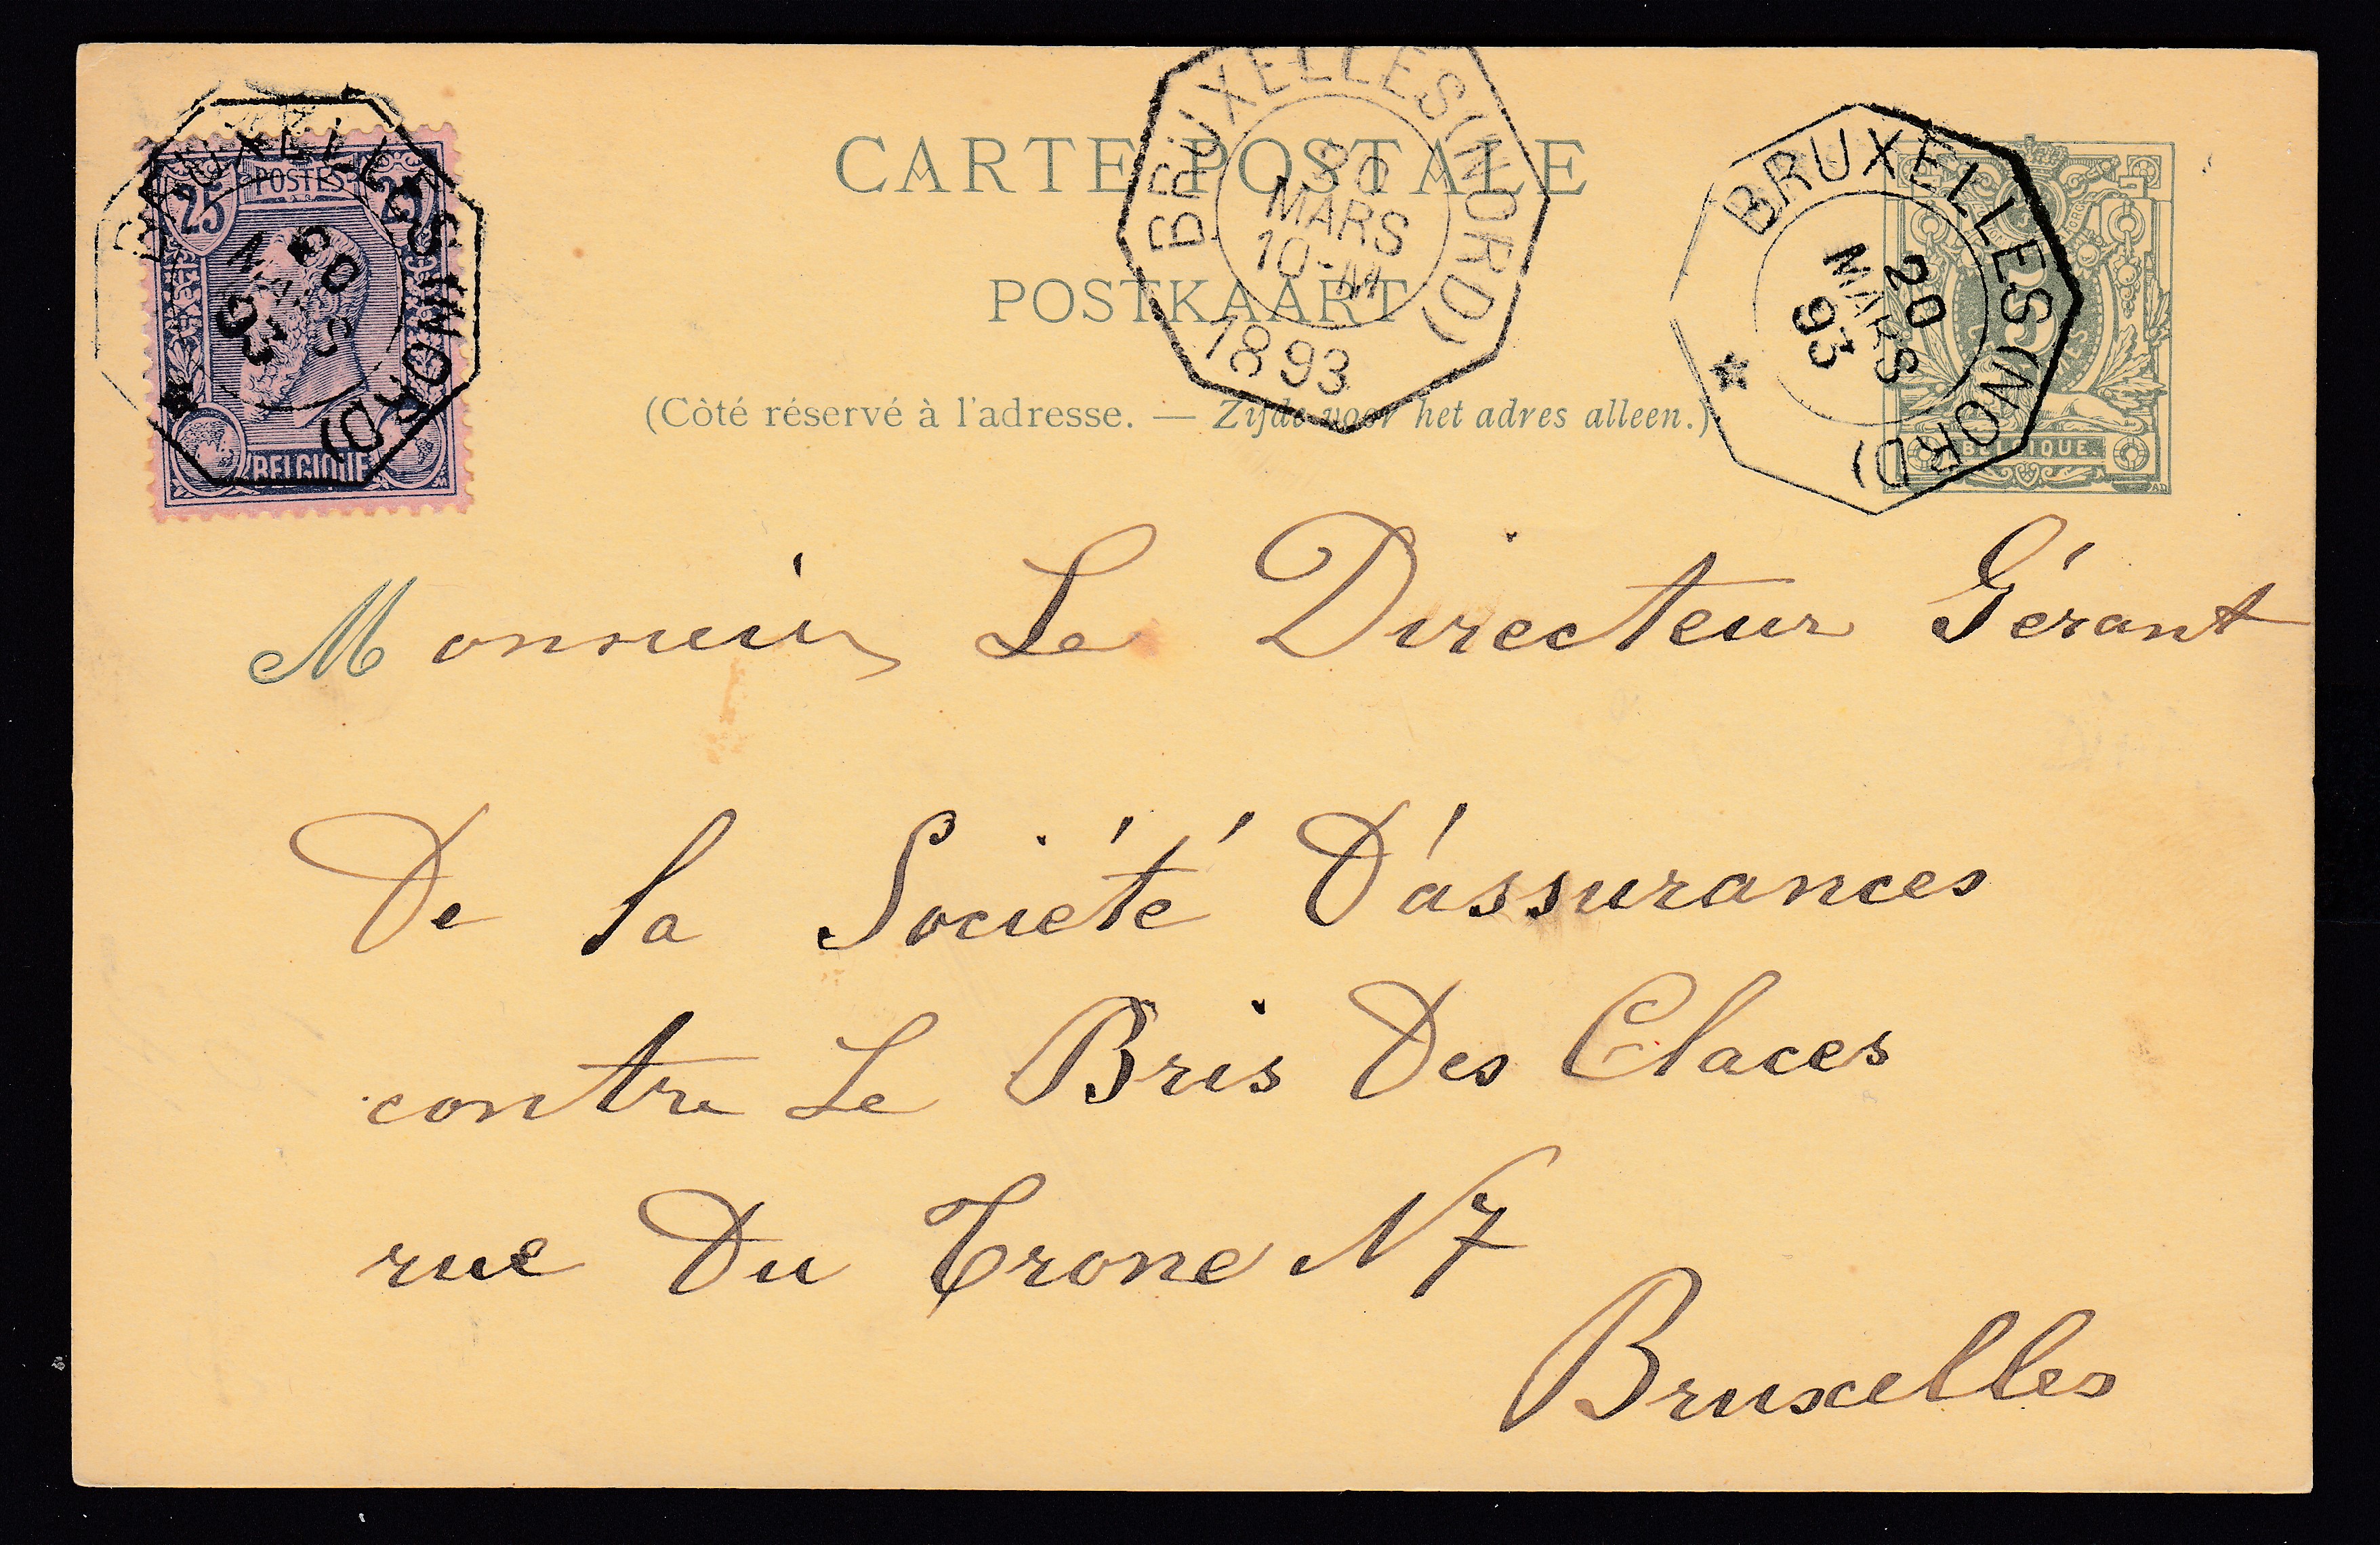 CARTE POSTALE
POSTKAART
(Côté réservé à l'adresse. — Zijde voor het adres alleen.)
25 POSTES 25
BELGIQUE
BRUXELLES (NORD)
20
MARS
93
BRUXELLES (NORD)
20
MARS
10-M
1893
BRUXELLES (NORD)
20
MARS
93
5
BELGIQUE
Monsieur Le Directeur Gérant
De la Société D'assurances
contre Le Bris Des Glaces
rue Du Trone N 7
Bruxelles